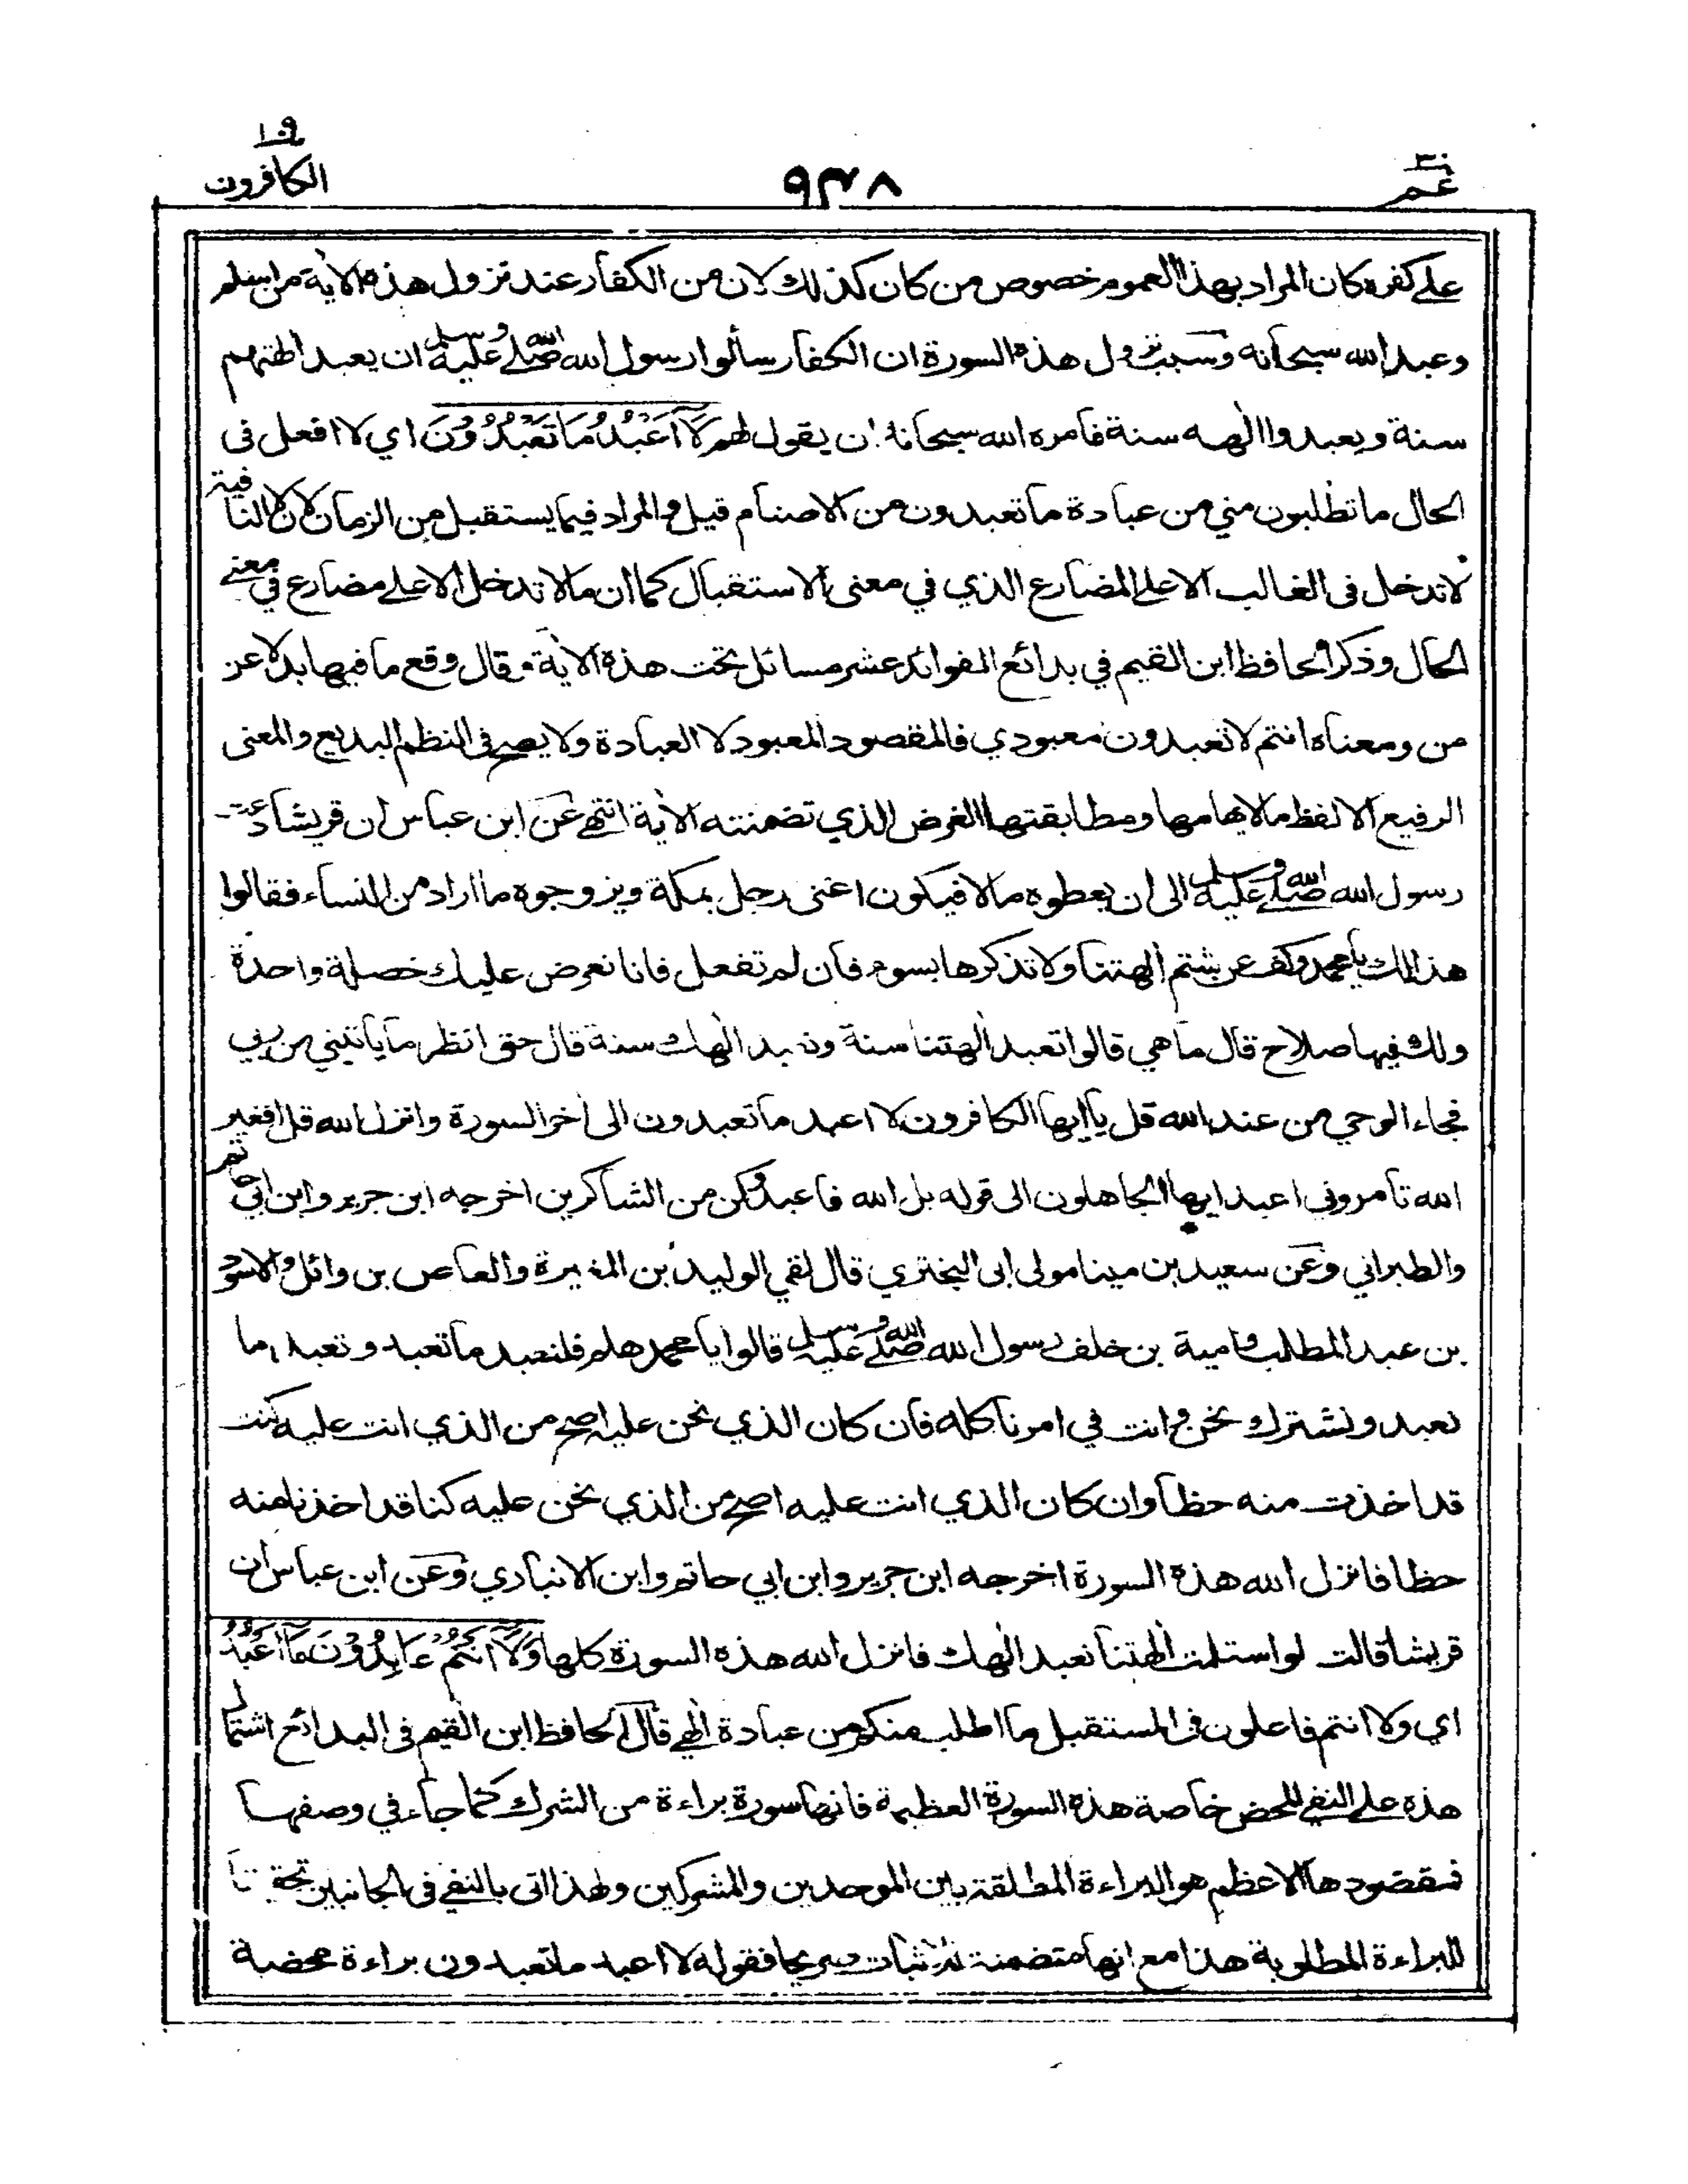 ٣٠ عم
٩٣٨
١٠٩ الكافرون
على كفره كان المراد بهذا العموم خصوص من كان كذلك لان من الكفار عند نزول هذه الآية من اسلم
وعبد الله سبحانه وسبب نزول هذه السورة ان الكفار سألوا رسول الله صلى الله عليه وسلم ان يعبد الهتهم
سنة ويعبدوا الٰهه سنة فامره الله سبحانه ان يقول لهم لَآ اَعْبُدُ مَا تَعْبُدُوْنَ اي لا افعل فى
الحال ما تطلبون مني من عبادة ما تعبدون من الاصنام قيل والمراد فيما يستقبل من الزمان لان لا النافية
لا تدخل فى الغالب الا على المضارع الذي في معنى الاستقبال كما ان ما لا تدخل الا على مضارع في معنى
الحال وذكر الحافظ ابن القيم في بدائع الفوائد عشر مسائل تحت هذه الآية وقال وقع ما فيها بدلا عن
من ومعناه انتم لا تعبدون معبودي فالمقصود المعبود لا العبادة ولا يصح فى النظم البديع والمعنى
الرفيع الا لفظ ما لابهامها ومطابقتها الغرض الذي تضمنته الآية انتهى عن ابن عباس ان قريشا دعت
رسول الله صلى الله عليه وسلم الى ان يعطوه مالا فيكون اغنى رجل بمكة ويزوجوه ما اراد من النساء فقالوا
هذا لك يا محمد وكف عن شتم اٰلهتنا ولا تذكرها بسوء فان لم تفعل فانا نعرض عليك خصلة واحدة
ولك فيها صلاح قال ما هي قالوا تعبد اٰلهتنا سنة ونعبد الٰهك سنة قال حتى انظر ما يأتيني من ربي
فجاء الوحي من عند الله قل يا ايها الكافرون لا اعبد ما تعبدون الى اٰخر السورة وانزل الله قل افغير
الله تأمروني اعبد ايها الجاهلون الى قوله بل الله فاعبد وكن من الشاكرين اخرجه ابن جرير وابن ابي حاتم
والطبراني وعن سعيد بن مينا مولى ابى البختري قال لقي الوليد بن المغيرة والعاص بن وائل والاسود
بن عبد المطلب وامية بن خلف رسول الله صلى الله عليه وسلم قالوا يا محمد هلم فلنعبد ما تعبد وتعبد ما
نعبد ونشترك نحن وانت في امرنا كله فان كان الذي نحن عليه اصح من الذي انت عليه كنت
قد اخذت منه حظا وان كان الذي انت عليه اصح من الذي نحن عليه كنا قد اخذنا منه
حظا فانزل الله هذه السورة اخرجه ابن جرير وابن ابي حاتم وابن الانباري وعن ابن عباس ان
قريشا قالت لو استلمت اٰلهتنا نعبد الٰهك فانزل الله هذه السورة كلها وَلَآ اَنْتُمْ عَابِدُوْنَ مَآ اَعْبُدُ
اي ولا انتم فاعلون فى المستقبل ما اطلب منكم من عبادة الٰهي قال الحافظ ابن القيم فى البدائع اشتمال
هذه على النفي المحض خاصة هذه السورة العظيمة فانها سورة براءة من الشرك كما جاء في وصفها
فمقصودها الاعظم هو البراءة المطلقة بين الموحدين والمشركين ولهذا اتى بالنفي فى الجانبين تحقيقا
للبراءة المطلوبة هذا مع انها متضمنة للاثبات صريحا فقوله لا اعبد ما تعبدون براءة محضة